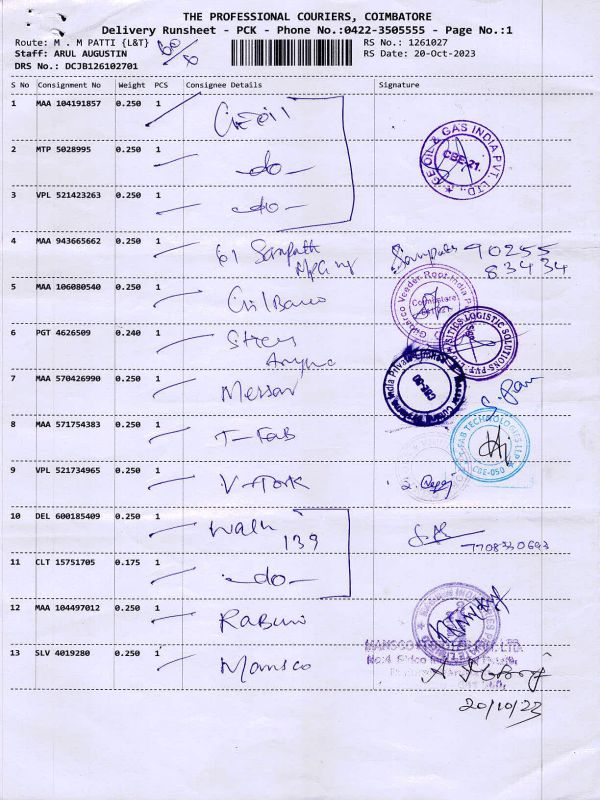 THE PROFESSIONAL COURIERS, COIMBATORE
Delivery Runsheet - PCK - Phone No.:0422-3505555 - Page No.:1
Route: M . M PATTI {L&T}
RS No.: 1261027
Staff: ARUL AUGUSTIN
RS Date: 20-Oct-2023
DRS No.: DCJB126102701
S No Consignment No Weight PCS Consignee Details Signature
1 MAA 104191857 0.250 1
GE OIL & GAS INDIA PVT. LTD.
CBE-21.
2 MTP 5028995 0.250 1 -do-
3 VPL 521423263 0.250 1 -do-
4 MAA 943665662 0.250 1 61 Sampath
Sampath 90255
83434
5 MAA 106080540 0.250 1
Gilbarco Veeder Root India
Coimbatore
6 PGT 4626509 0.240 1
SITICS LOGISTIC SOLUTIONS PVT. LTD.
7 MAA 570426990 0.250 1 Messar
8 MAA 571754383 0.250 1 T-Fab
T-FAB TECHNOLOGIES LLP
CBE-050
9 VPL 521734965 0.250 1 V-Tork
10 DEL 600185409 0.250 1 139
7708330693
11 CLT 15751705 0.175 1 -do-
12 MAA 104497012 0.250 1
13 SLV 4019280 0.250 1 Mansco
20/10/23